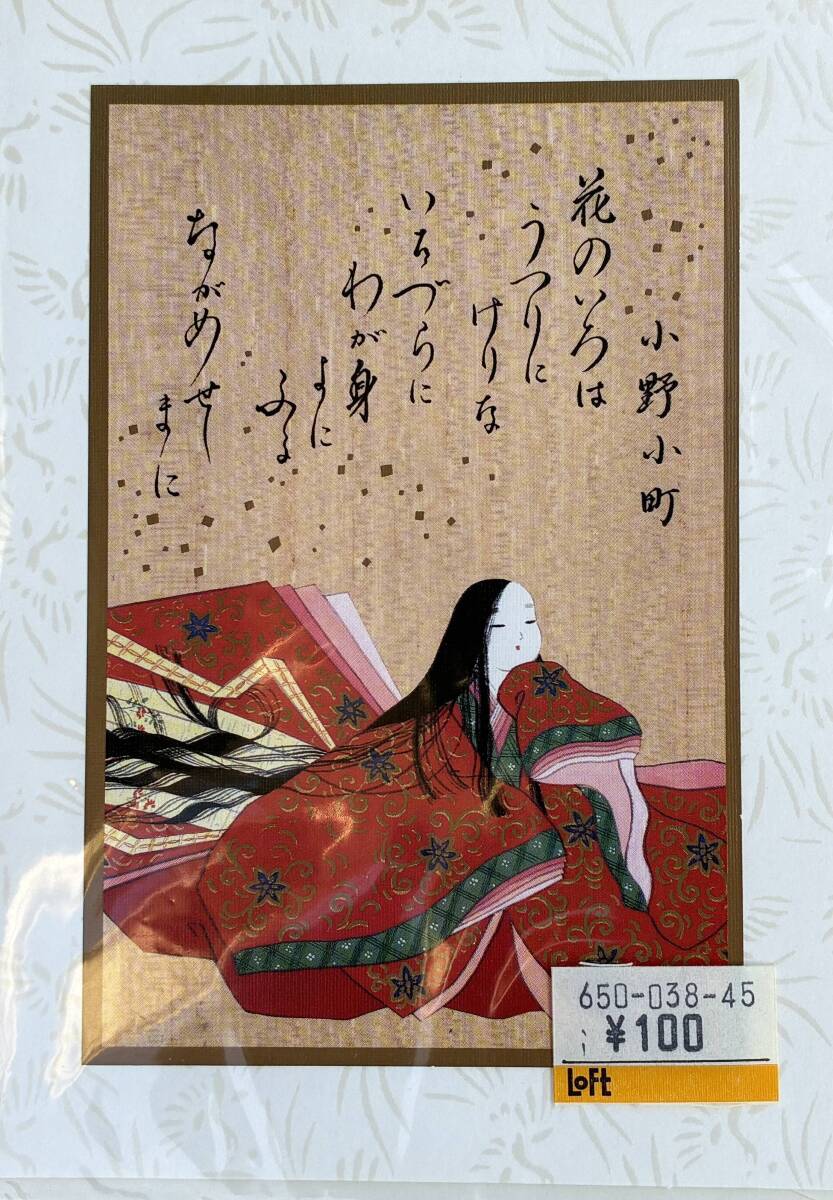 小野小町
花のいろは
うつりに
けりな
いたづらに
わが身
よに
ふる
ながめせし
まに
650-038-45
¥100
LoFt